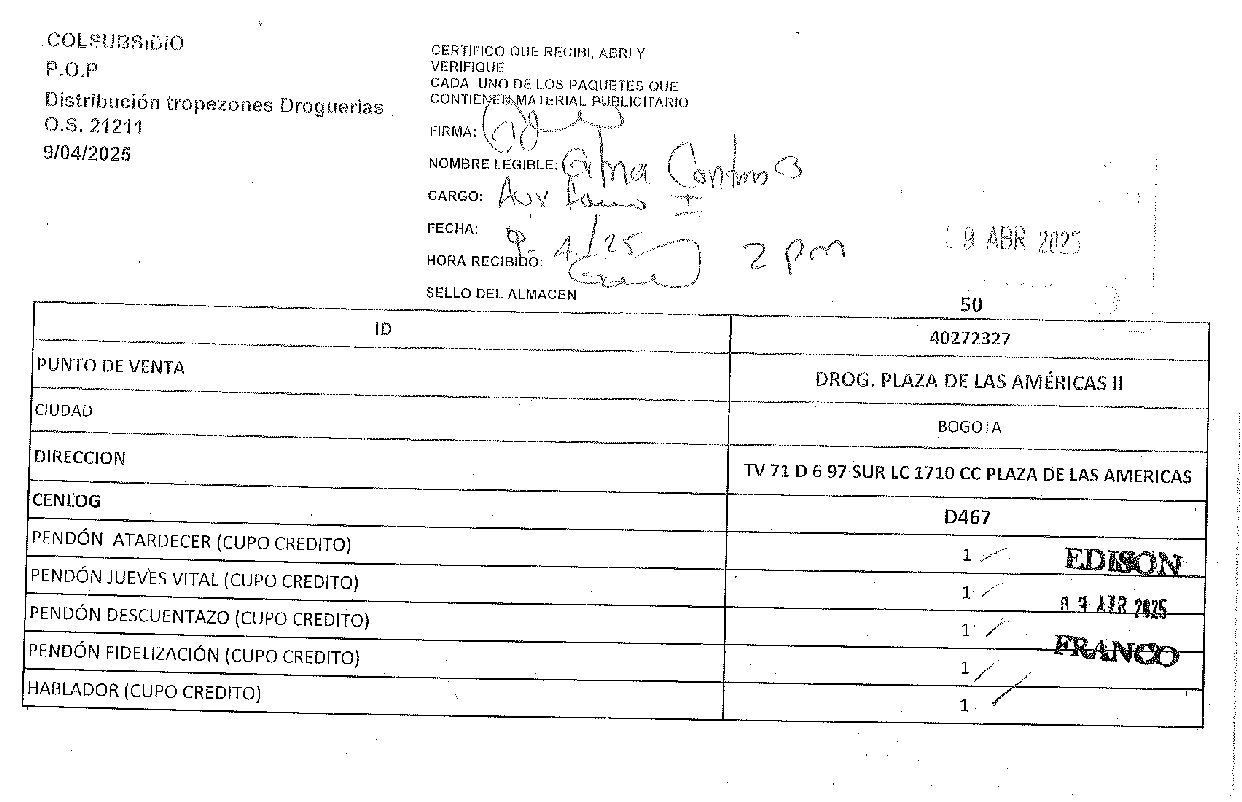 COLSUBSIDIO
P.O.P
Distribución tropezones Droguerias
O.S. 21211
9/04/2025
CERTIFICO QUE RECIBI, ABRI Y
VERIFIQUE
CADA UNO DE LOS PAQUETES QUE
CONTIENEN MATERIAL PUBLICITARIO
FIRMA:
NOMBRE LEGIBLE:
CARGO: Aux
FECHA: 9-4/25
HORA RECIBIDO: 2 pm
9 ABR 2025
SELLO DEL ALMACEN
50
ID 40272327
PUNTO DE VENTA DROG. PLAZA DE LAS AMÉRICAS II
CIUDAD BOGOTA
DIRECCION TV 71 D 6 97 SUR LC 1710 CC PLAZA DE LAS AMERICAS
CENLOG D467
PENDÓN ATARDECER (CUPO CREDITO) 1
EDISON
PENDÓN JUEVES VITAL (CUPO CREDITO) 1
ABR 2025
PENDÓN DESCUENTAZO (CUPO CREDITO) 1
FRANCO
PENDÓN FIDELIZACIÓN (CUPO CREDITO) 1
HABLADOR (CUPO CREDITO) 1